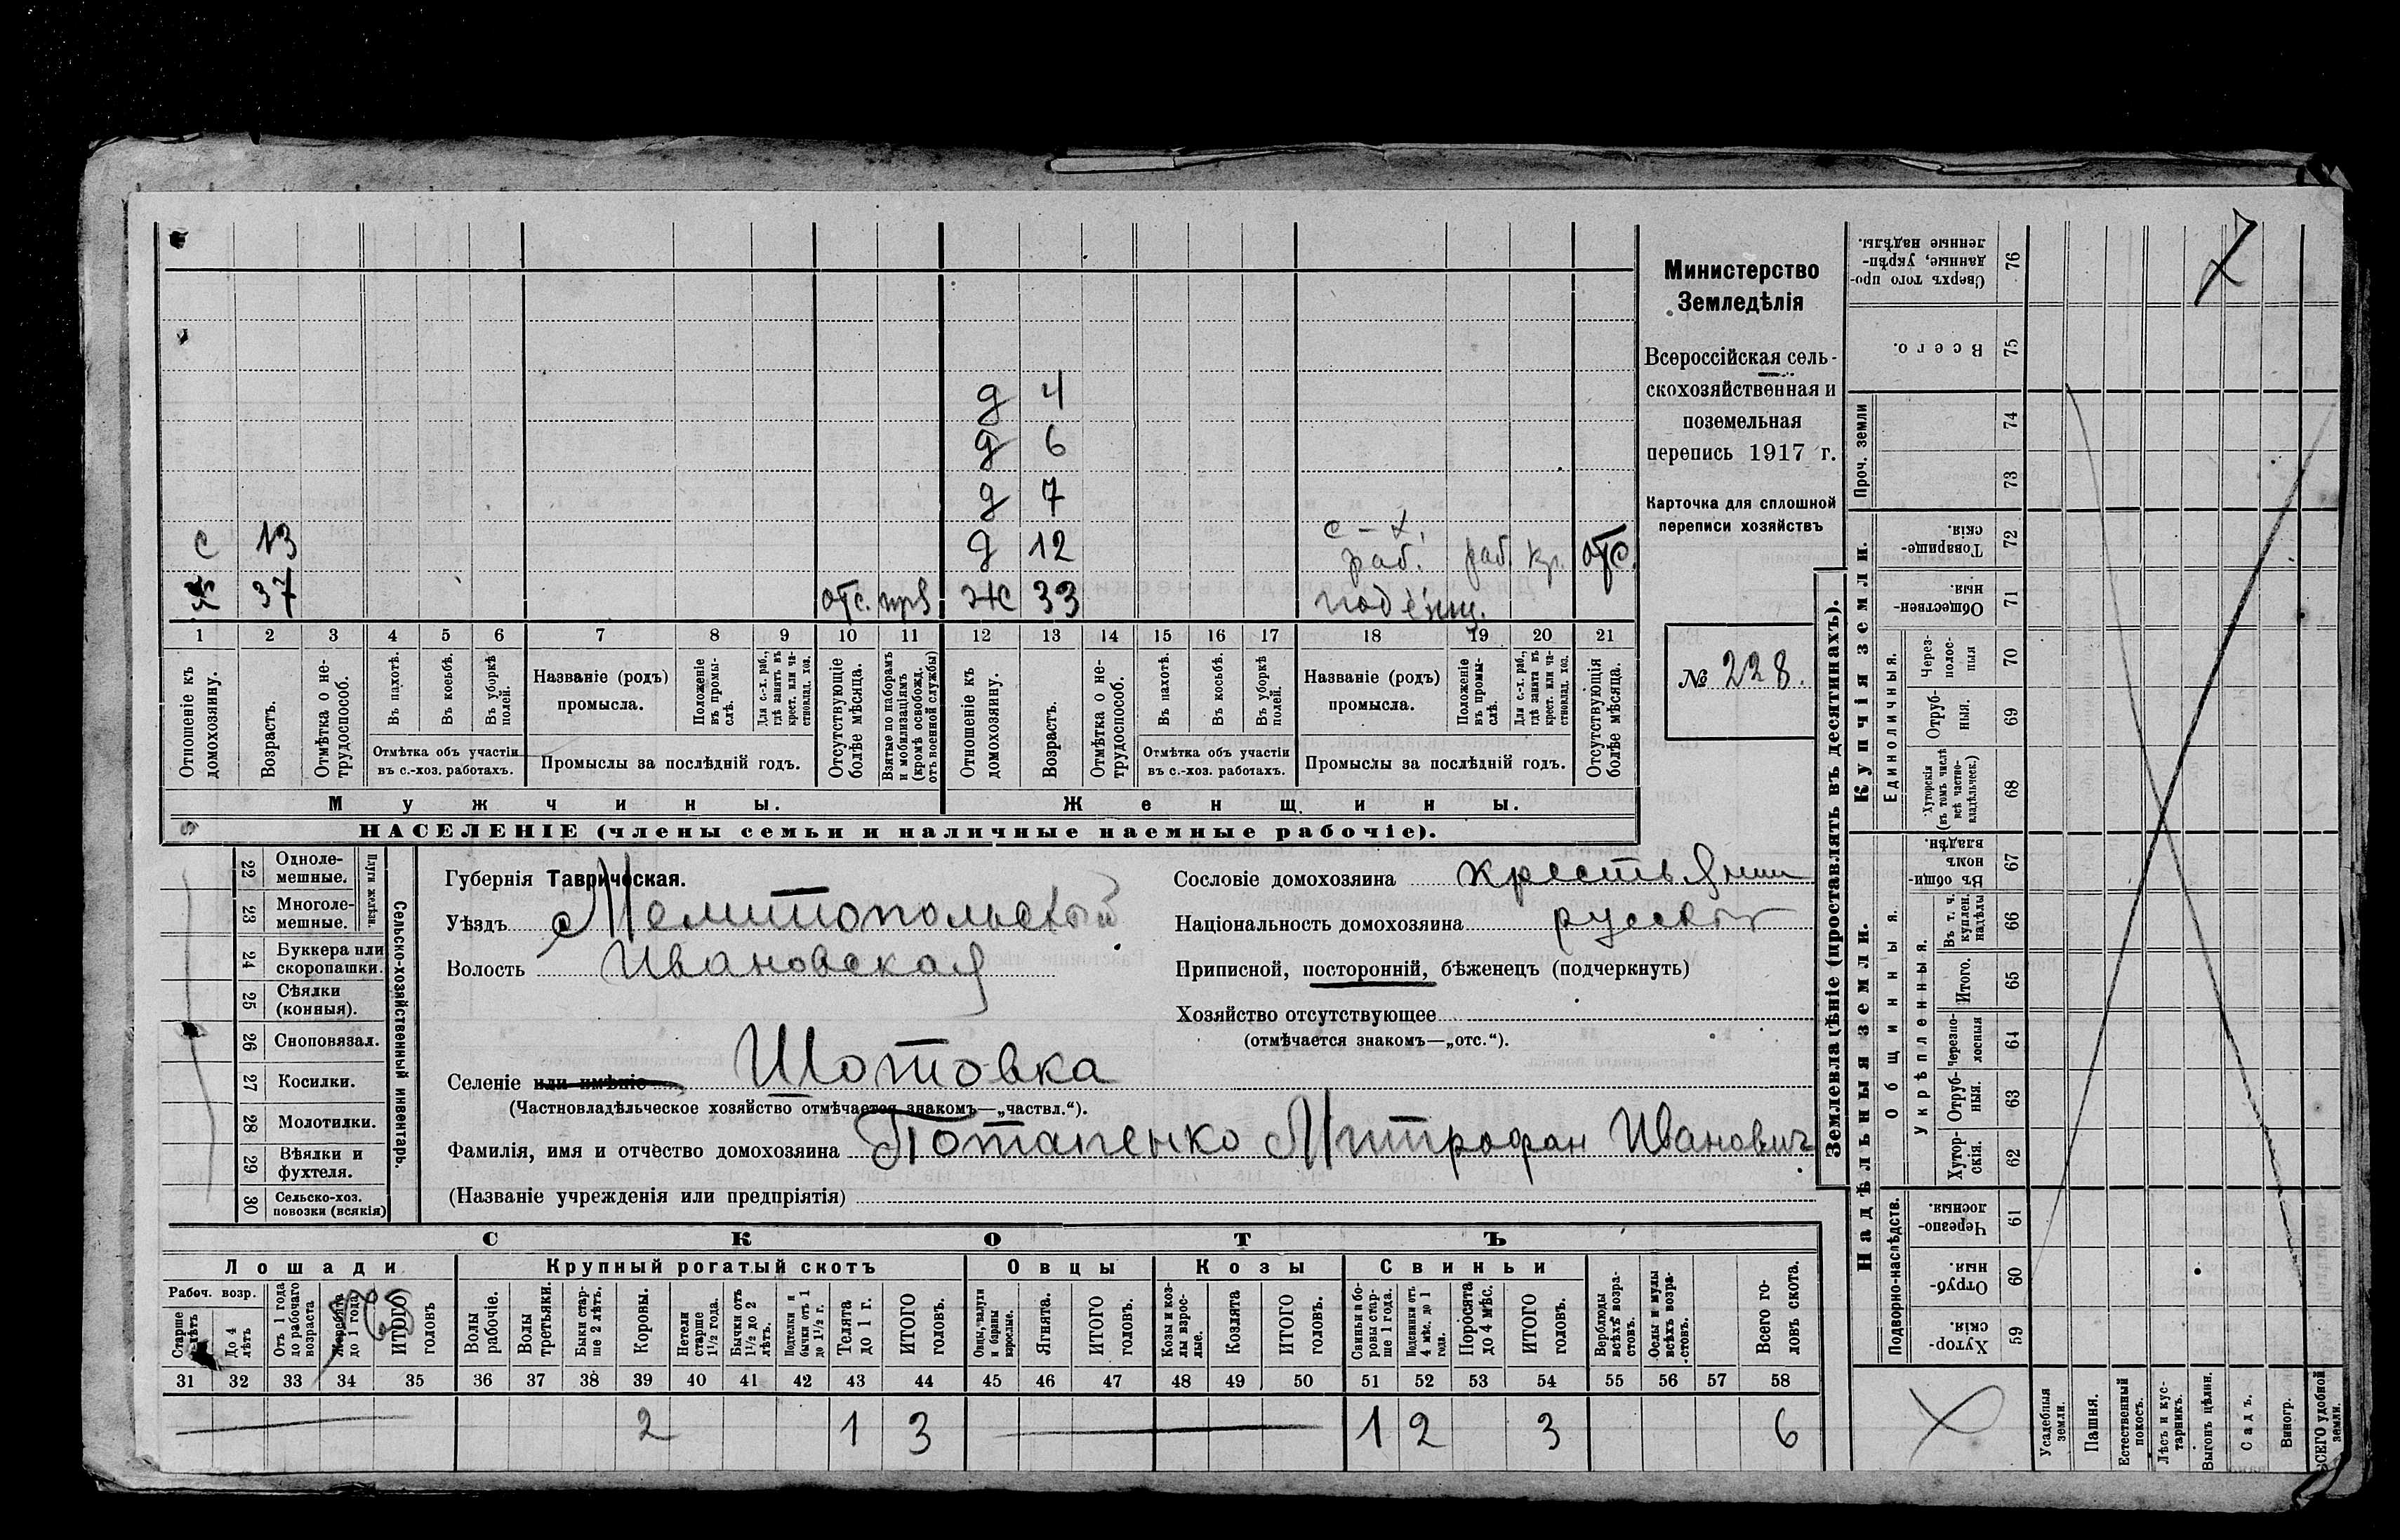 д 4
д 6
д 7
с 13 д 12 с-х. раб. раб. кр. отс.
х 37 отс. 33 подёнщ.
1 2 3 4 5 6 7 8 9 10 11 12 13 14 15 16 17 18 19 20 21
Отношеніе къ домохозяину.
Возрастъ.
Отмѣтка о не-трудоспособ.
Въ пахотѣ.
Въ косьбѣ.
Въ уборкѣ полей.
Отмѣтка объ участіи
въ с.-хоз. работахъ.
Названіе (родъ)
промысла.
Положеніе въ промы-слѣ.
Для с.-х. раб., гдѣ занятъ въ крест. или ча-стновлад. хоз.
Промыслы за послѣдній годъ.
Отсутствующіе болѣе мѣсяца.
Взятые по наборамъ и мобилизаціямъ (кромѣ освобожд. отъ военной службы)
Отношеніе къ домохозяину.
Возрастъ.
Отмѣтка о не-трудоспособ.
Въ пахотѣ.
Въ косьбѣ.
Въ уборкѣ полей.
Отмѣтка объ участіи
въ с.-хоз. работахъ.
Названіе (родъ)
промысла.
Положеніе въ промы-слѣ.
Для с.-х. раб., гдѣ занята въ крест. или ча-стновлад. хоз.
Промыслы за послѣдній годъ.
Отсутствующія болѣе мѣсяца.
Мужчины. Женщины.
НАСЕЛЕНІЕ (члены семьи и наличные наемные рабочіе).
Министерство
Земледѣлія
Всероссійская сель-
скохозяйственная и
поземельная
перепись 1917 г.
Карточка для сплошной
переписи хозяйствъ
№ 228.
22 Одноле-мешные.
23 Многоле-мешные.
Плуги желѣзн.
24 Буккера или скоропашки.
25 Сѣялки (конныя).
26 Сноповязал.
27 Косилки.
28 Молотилки.
29 Вѣялки и фухтеля.
30 Сельско-хоз. повозки (всякія)
Сельско-хозяйственный инвентарь.
Губернія Таврическая.
Уѣздъ Мелитопольскый
Волость Ивановская
Селеніе или имѣніе Шотовка
(Частновладѣльческое хозяйство отмѣчается знакомъ—„частвл.“).
Фамилія, имя и отчество домохозяина Потапенко Митрофан Иванович
(Названіе учрежденія или предпріятія)
Сословіе домохозяина крестьянин
Національность домохозяина русскій
Приписной, посторонній, бѣженецъ (подчеркнуть)
Хозяйство отсутствующее
(отмѣчается знакомъ—„отс.“).
СКОТЪ
Лошади Крупный рогатый скотъ Овцы Козы Свиньи
Рабоч. возр.
Старше лѣтъ
До 4 лѣтъ
Отъ 1 года до рабочаго возраста
Жеребята до 1 года
ИТОГО головъ
Волы рабочіе.
Волы третьяки.
Быки стар-ше 2 лѣтъ.
Коровы.
Нетели старше 1½ года.
Бычки отъ 1½ до 2 лѣтъ.
Подтелки и бычки отъ 1 до 1½ г.
Телята до 1 г.
ИТОГО головъ.
Овцы, валухи и бараны взрослые.
Ягнята.
ИТОГО головъ.
Козы и коз-лы взрос-лые.
Козлята
ИТОГО головъ.
Свиньи и бо-ровы стар-ше 1 года.
Подсвинки отъ 4 мѣс. до 1 года.
Поросята до 4 мѣс.
ИТОГО головъ.
Верблюды всѣхъ возра-стовъ.
Ослы и мулы всѣхъ возра-стовъ.
Всего го-ловъ скота.
31 32 33 34 35 36 37 38 39 40 41 42 43 44 45 46 47 48 49 50 51 52 53 54 55 56 57 58
2 1 3 1 2 3 6
Землевладѣніе (проставлять въ десятинахъ).
Надѣльныя земли.
Купчія земли.
Проч. земли
Подворно-наслѣдств.
Общинныя.
Укрѣпленныя.
Единоличныя.
Сверхъ того про-данные, укрѣп-ленные надѣлы. 76
Всего. 75
74
73
Товарище-скія. 72
Обществен-ныя. 71
Через-полос-ныя 70
Отруб-ныя. 69
Хуторскія (въ томъ числѣ всѣ частно-владѣльческ.) 68
Въ общи-номъ владѣн. 67
Въ т. ч. куплен. надѣлы 66
Итого. 65
Черезпо-лосныя 64
Отруб-ныя. 63
Хутор-скія. 62
Черезпо-лосныя. 61
Отруб-ныя. 60
Хутор-скія. 59
Усадебныя земли.
Пашня.
Естественный покосъ.
Лѣсъ и кус-тарникъ.
Выгонъ цѣлин.
Садъ.
Виногр.
ВСЕГО удобной земли.